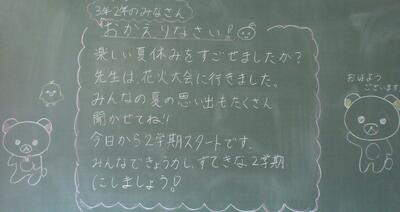 3年2年のみなさん
おかえりなさい!
楽しい夏休みをすごせましたか?
先生は花火大会に行きました。
みんなの夏の思い出もたくさん
聞かせてね!!
今日から2学期スタートです。
みんなできょう力し、すてきな2学期
にしましょう!
おはよう
ございます。